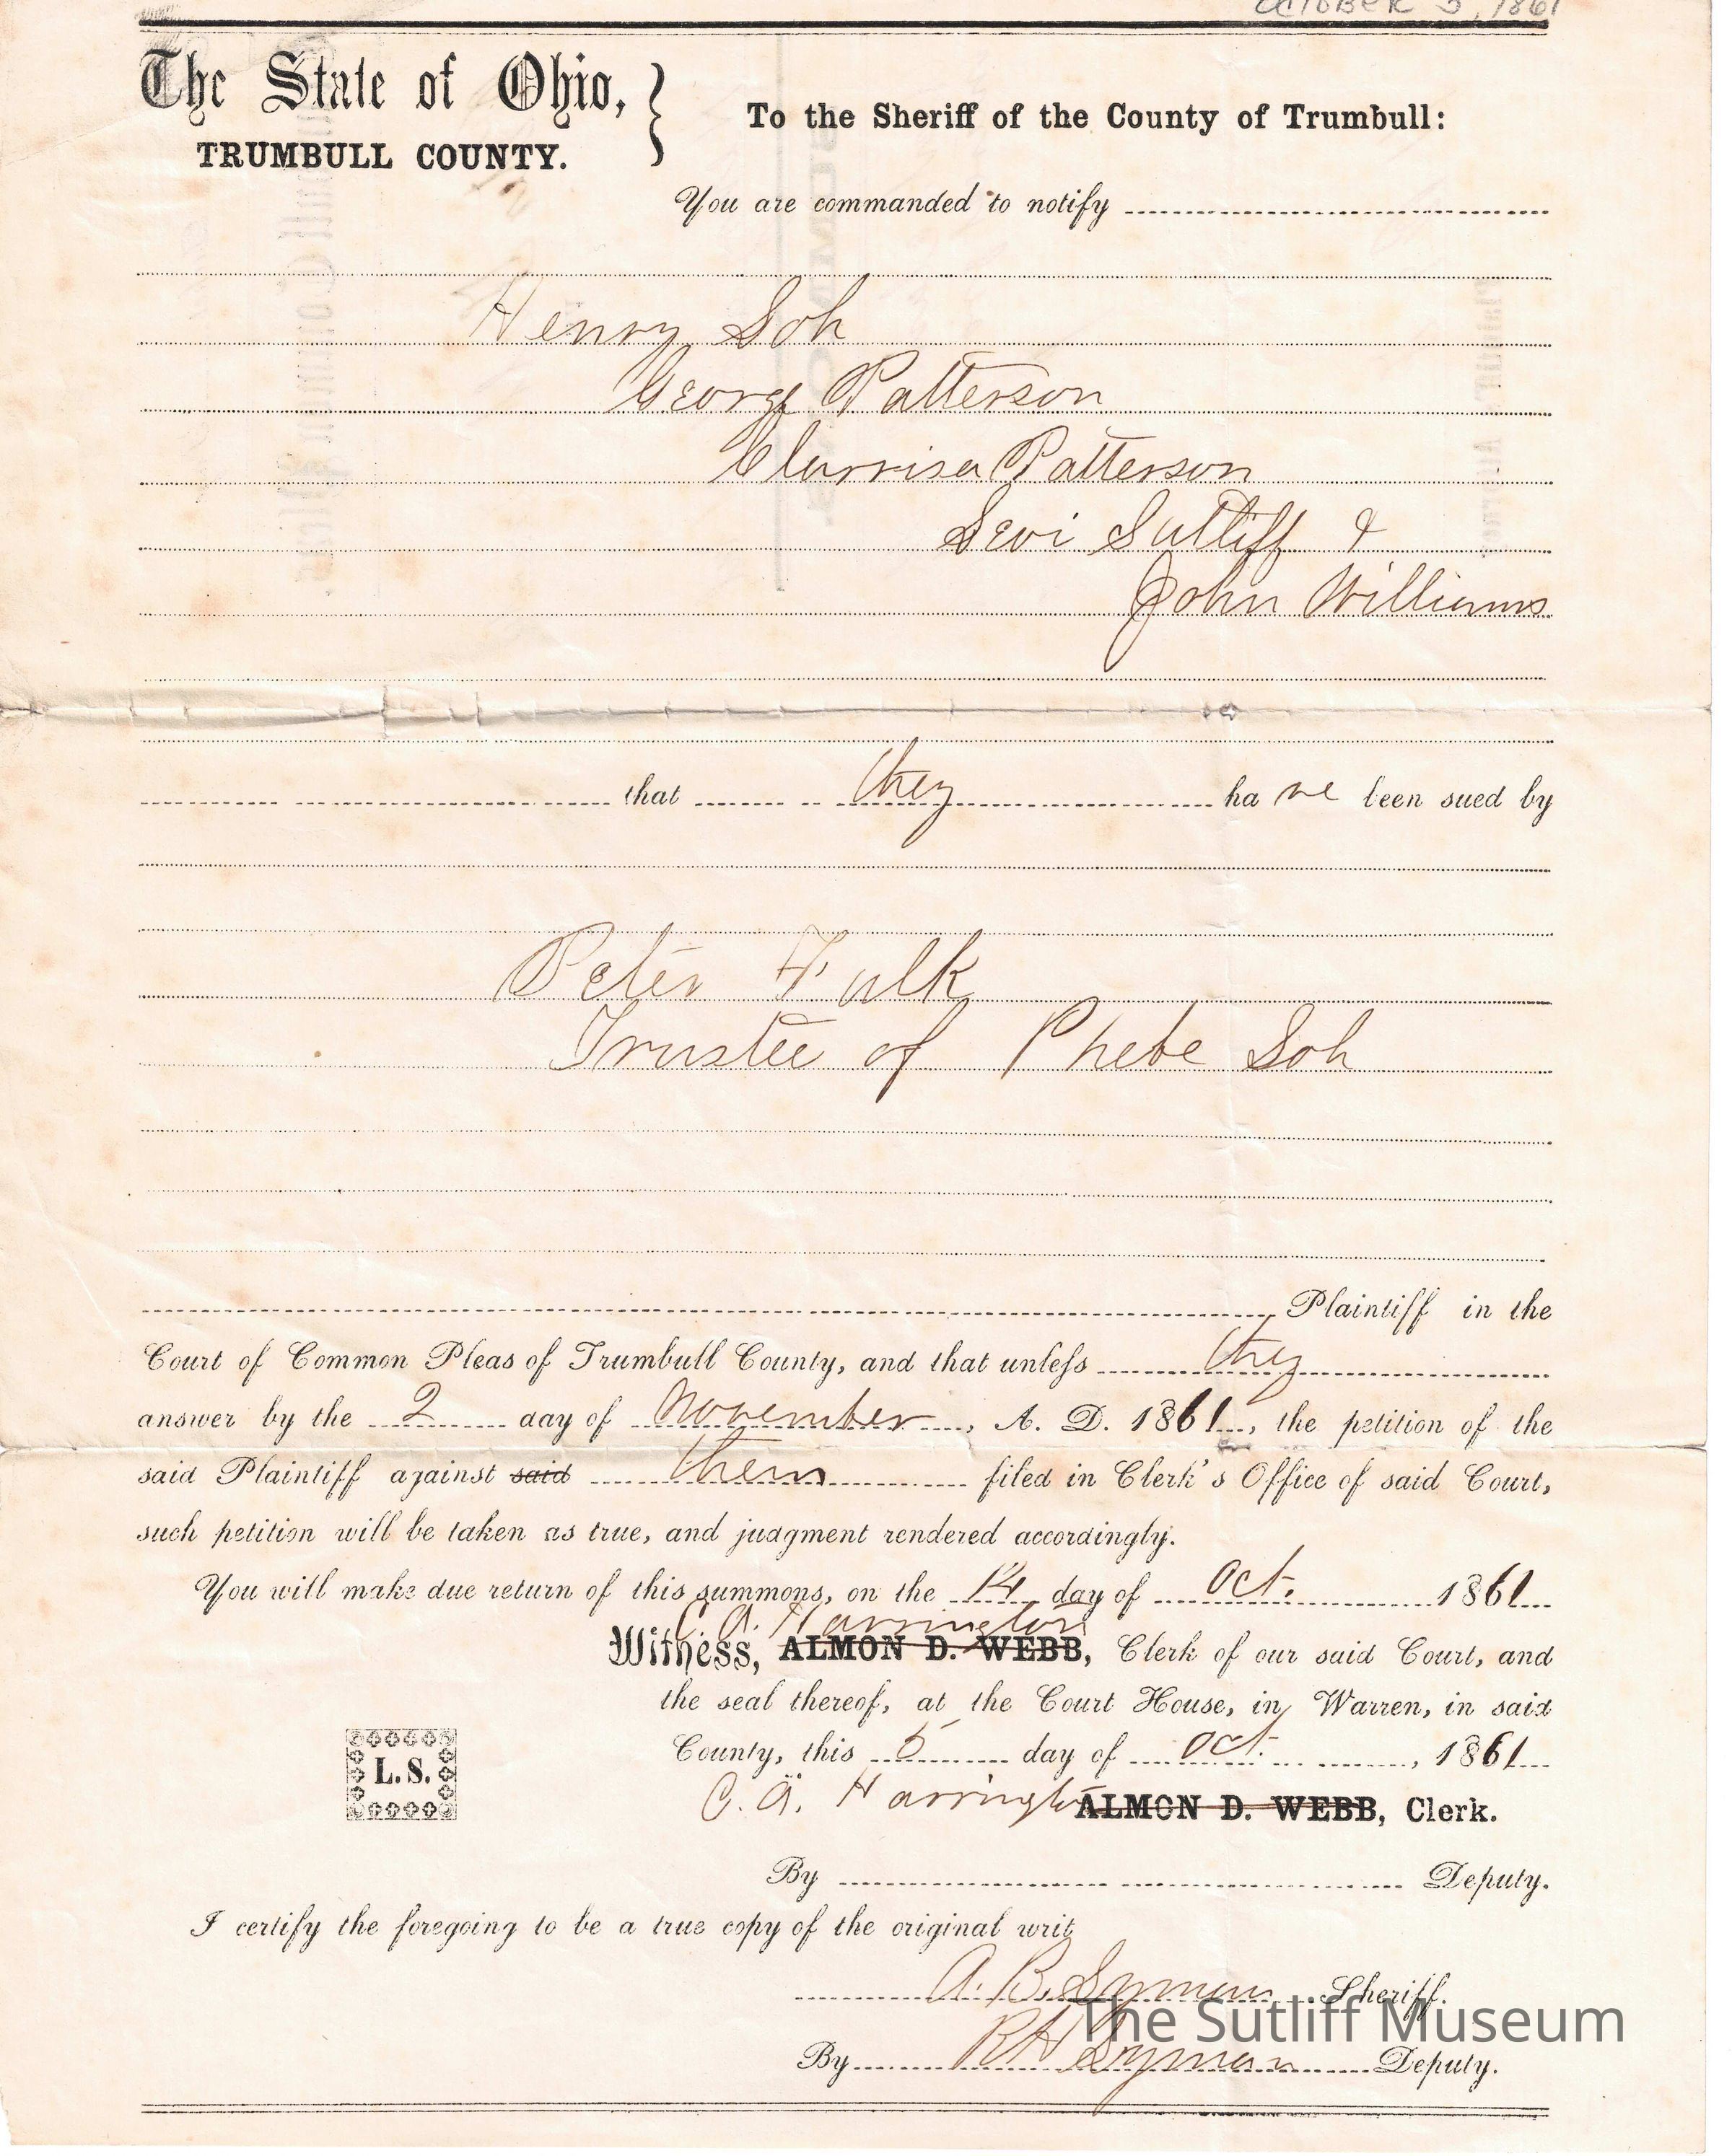 OCTOBER 5, 1861
The State of Ohio,
TRUMBULL COUNTY.
To the Sheriff of the County of Trumbull:
You are commanded to notify
Henry Soh
George Patterson
Clarrisa Patterson
Levi Sutliff &
John Williams
that they have been sued by
Peter Fulk
Trustee of Phebe Soh
Plaintiff in the
Court of Common Pleas of Trumbull County, and that unless they
answer by the 2 day of November, A. D. 1861, the petition of the
said Plaintiff against said them filed in Clerk's Office of said Court,
such petition will be taken as true, and judgment rendered accordingly.
You will make due return of this summons, on the 14 day of Oct. 1861
C. A. Harrington
Witness, ALMON D. WEBB, Clerk of our said Court, and
the seal thereof, at the Court House, in Warren, in said
County, this 5 day of Oct. , 1861
L. S.
C. A. Harrington ALMON D. WEBB, Clerk.
By Deputy.
I certify the foregoing to be a true copy of the original writ
A. B. Lyman Sheriff.
The Sutliff Museum
By R H Lyman Deputy.